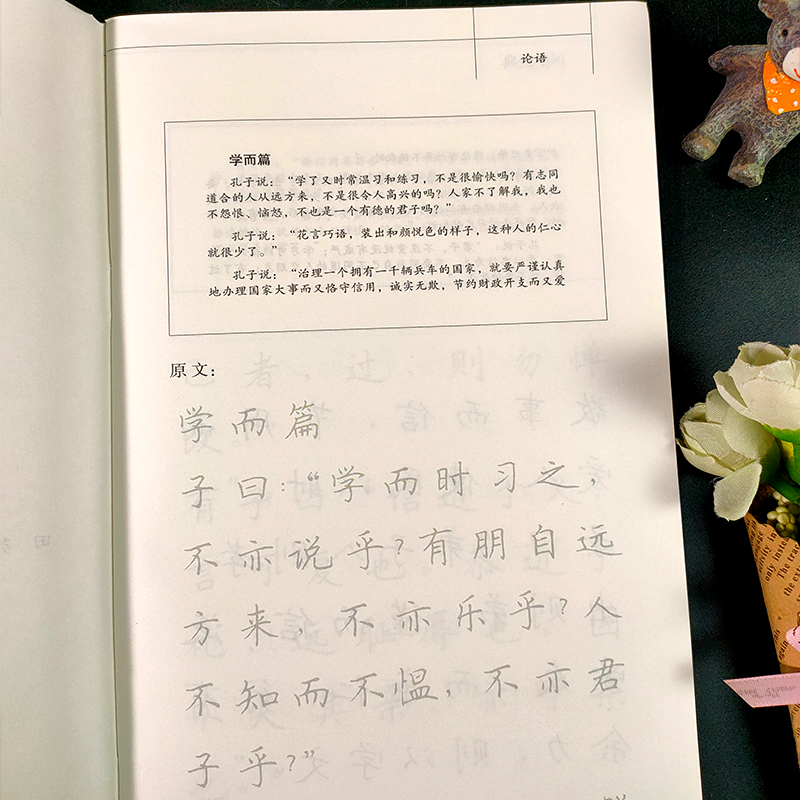 论语
学而篇
孔子说：“学了又时常温习和练习，不是很愉快吗？有志同
道合的人从远方来，不是很令人高兴的吗？人家不了解我，我也
不怨恨、恼怒，不也是一个有德的君子吗？”
孔子说：“花言巧语，装出和颜悦色的样子，这种人的仁心
就很少了。”
孔子说：“治理一个拥有一千辆兵车的国家，就要严谨认真
地办理国家大事而又恪守信用，诚实无欺，节约财政开支而又爱
原文：
学而篇
子曰：“学而时习之，
不亦说乎？有朋自远
方来，不亦乐乎？人
不知而不愠，不亦君
子乎？”